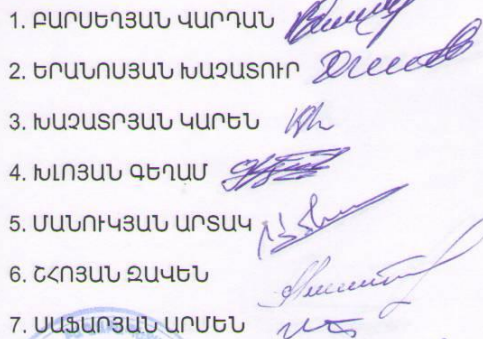 1. ԲԱՐՍԵՂՅԱՆ ՎԱՐԴԱՆ
2. ԵՐԱՆՈՍՅԱՆ ԽԱՉԱՏՈՒՐ
3. ԽԱՉԱՏՐՅԱՆ ԿԱՐԵՆ
4. ԽԼՈՅԱՆ ԳԵՂԱՄ
5. ՄԱՆՈՒԿՅԱՆ ԱՐՏԱԿ
6. ՇՀՈՅԱՆ ԶԱՎԵՆ
7. ՍԱՖԱՐՅԱՆ ԱՐՄԵՆ